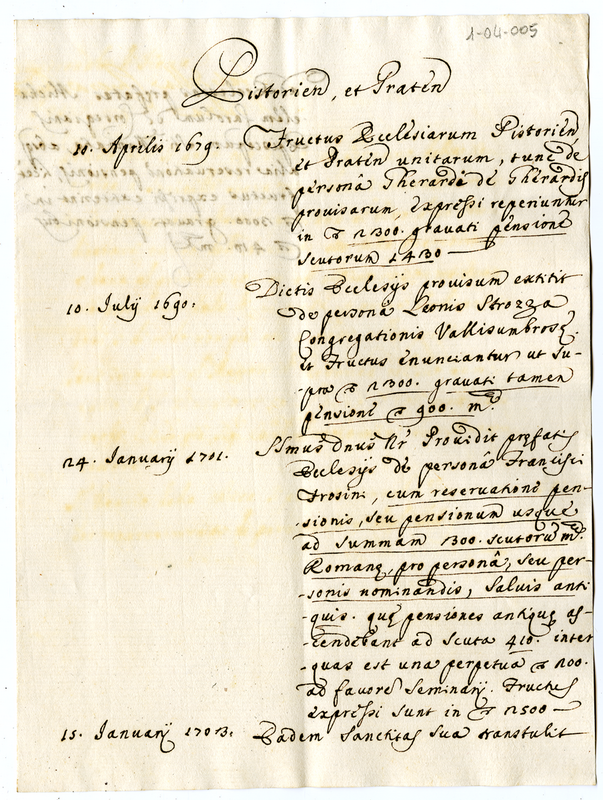 1-04-005
Pistorien, et Praten
10. Aprilis 1679. Fructus Ecclesiarum Pistorien
et Praten unitarum, tunc de
personâ Gherardi de Gherardis
provisarum, expressi reperiuntur
in 2300. gravati pensione
scutorum 1430
Dictis Ecclesijs provisum extitit
10. Julij 1690. de personâ Leonis Strozza
Congregationis Vallisumbrosę.
et Fructus enunciantur ut su-
-pra 2300. gravati tamen
pensione 900. m.tę
24. Januarij 1701. SSmus Dnus Nr Providit pręfatis
Ecclesijs de personâ Francisci
Frosini, cum reservatione pen-
-sionis, seu pensionum usque
ad summam 300. scutorum m.tę
Romanę, pro personâ, seu per-
-sonis nominandis, salvis anti-
-quis. quę pensiones antiquę as-
-cendebant ad scuta 410. inter
-quas est una perpetua 100.
ad favore Seminarij. Fructus
expressi sunt in 2500
15. Januarij 1703. Eadem Sanctitas sua transtulit